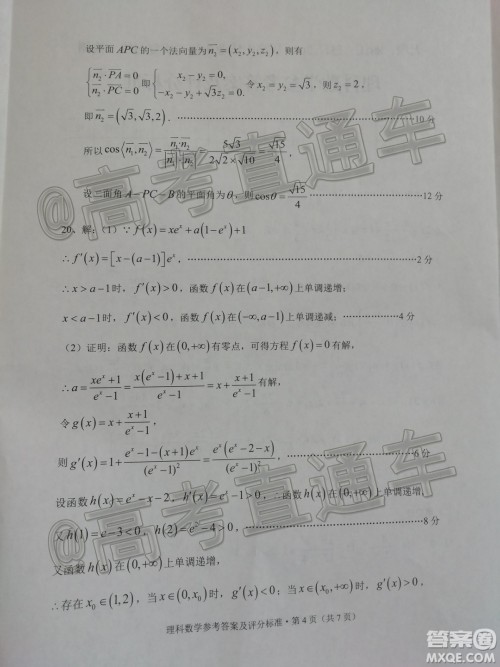 设平面 APC 的一个法向量为 n₂ = (x₂, y₂, z₂)，则有
{n₂·PA=0, n₂·PC=0 即 {x₂-y₂=0, -x₂-y₂+√3z₂=0. 令 x₂=y₂=√3，则 z₂=2，
即 n₂=(√3,√3,2). ……10 分
所以 cos⟨n₁,n₂⟩ = n₁·n₂/(|n₁|·|n₂|) = 5√3/(2√2×√10) = √15/4，
设二面角 A-PC-B 的平面角为 θ，则 cosθ=√15/4 ……12 分
20、解：(1) ∵ f(x)=xeˣ+a(1-eˣ)+1
∴ f′(x)=[x-(a-1)]eˣ， ……2 分
∴ x>a-1 时，f′(x)>0，函数 f(x) 在 (a-1,+∞) 上单调递增；
x<a-1 时，f′(x)<0，函数 f(x) 在 (-∞,a-1) 上单调递减； ……4 分
（2）证明：函数 f(x) 在 (0,+∞) 有零点，可得方程 f(x)=0 有解，
∴ a=(xeˣ+1)/(eˣ-1)=(x(eˣ-1)+x+1)/(eˣ-1)=x+(x+1)/(eˣ-1) 有解，
令 g(x)=x+(x+1)/(eˣ-1)
则 g′(x)=1+(eˣ-1-(x+1)eˣ)/(eˣ-1)²=eˣ(eˣ-2-x)/(eˣ-1)²， ……6 分
设函数 h(x)=eˣ-x-2，h′(x)=eˣ-1>0 ∴ 函数 h(x) 在 (0,+∞) 上单调递增，
又 h(1)=e-3<0，h(2)=e²-4>0， ……8 分
又函数 h(x) 在 (0,+∞) 上单调递增，
∴ 存在 x₀∈(1,2)，当 x∈(0,x₀) 时，g′(x)<0；当 x∈(x₀,+∞) 时，g′(x)>0
理科数学参考答案及评分标准·第 4 页（共 7 页）
@高考直通车
@高考直通车
答案圈